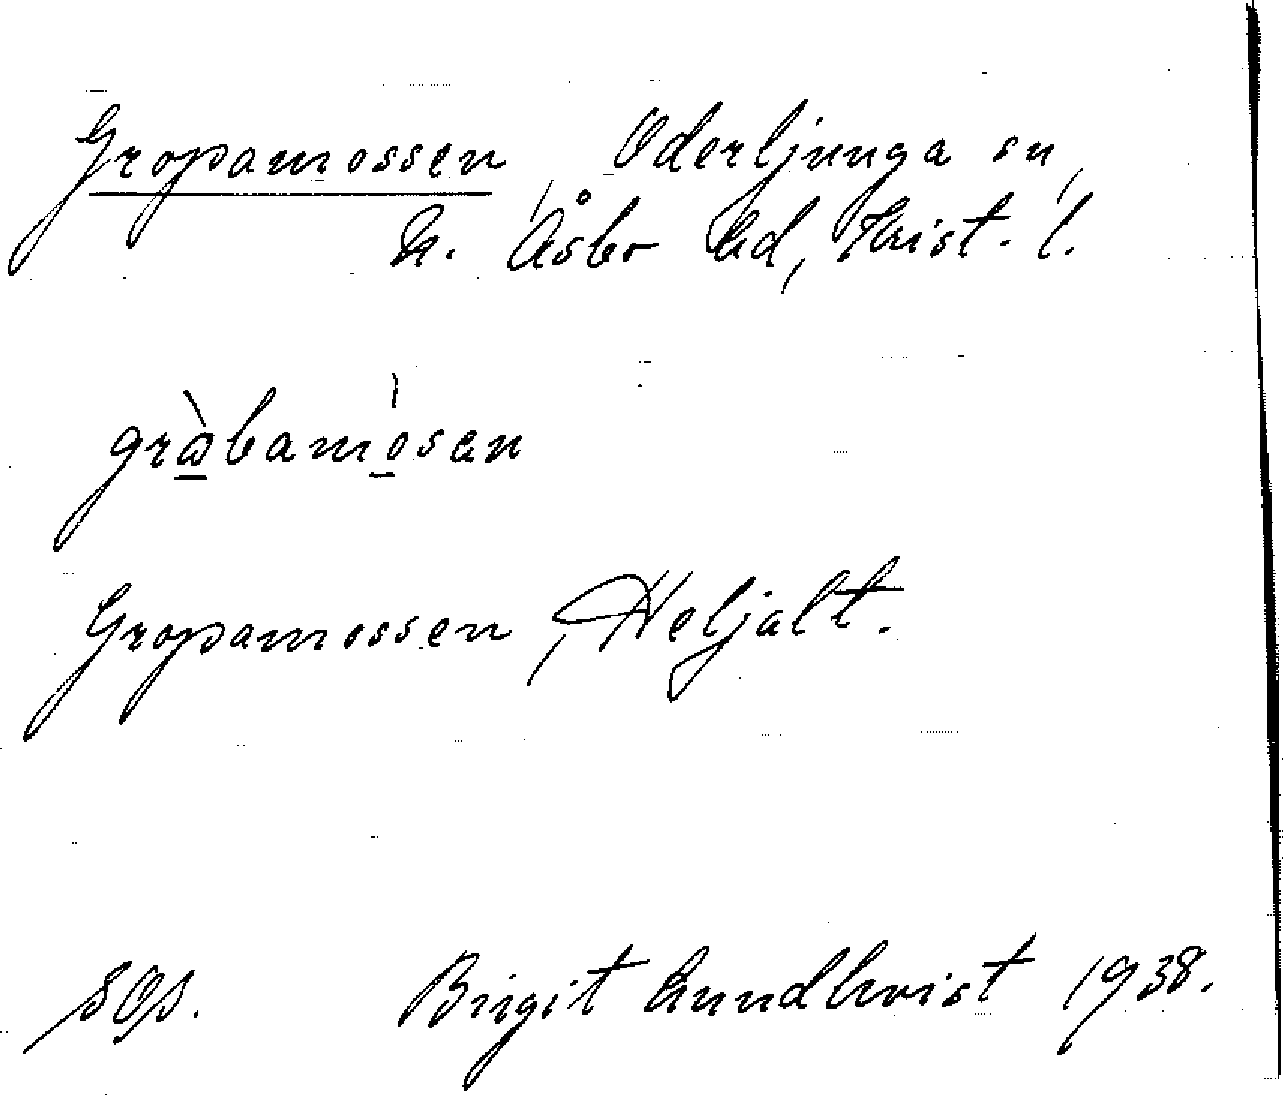 Gropamossen, Oderljunga sn,
N. Åsbo hd, Krist. l.
gråbamosen
Gropamossen, Heljalt.
SOS. Birgit Lundkvist 1938.